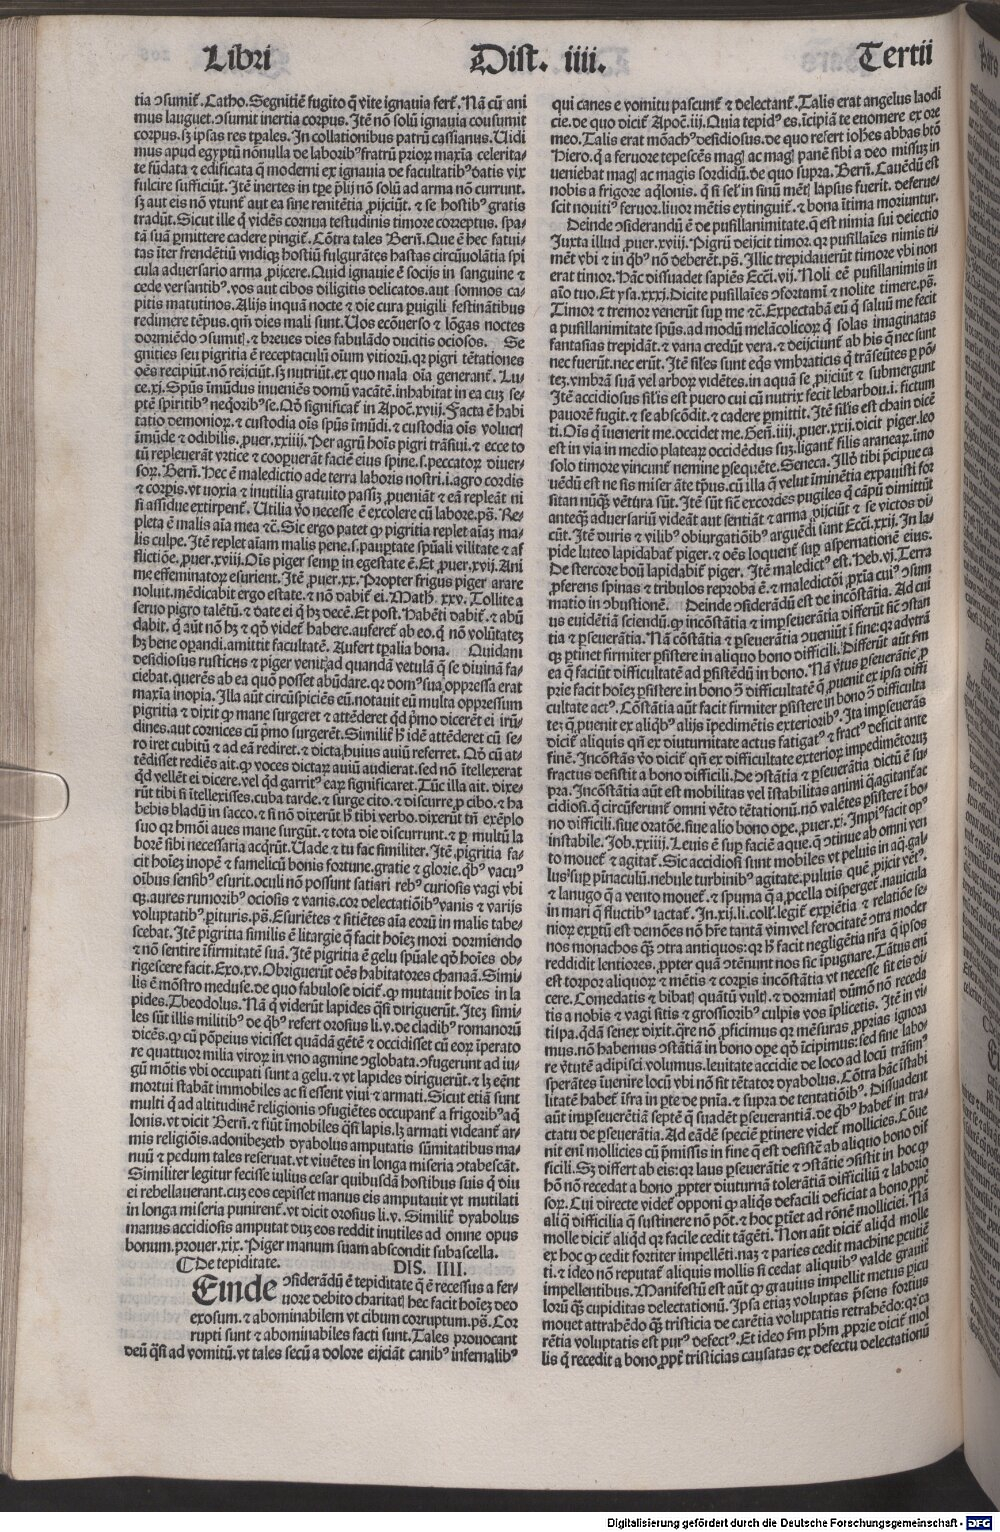 Libri Dist. iiii. Tertii
tia ↄsumit᷑. Catho. Segnitiē fugito q̄ vite ignauia fert᷑. Nā cū ani
mus languet. ↄsumit inertia corpus. Itē nō solū ignauia consumit
corpus. sꝫ ipsas res tꝑales. In collationibus patrū cassianus. Uidi
mus apud egyptū nōnulla de laboribꝰ fratrū prioꝝ maxīa celerita-
te fūdata ⁊ edificata q̄ moderni ex ignauia de facultatibꝰ datis vix
fulcire sufficiūt. Itē inertes in tꝑe p̄lij nō solū ad arma nō currunt.
sꝫ aut eis nō vtunt᷑ aut ea sine renitētia ꝓijciūt. ⁊ se hostibꝰ gratis
tradūt. Sicut ille q̄ vidēs cornua testudinis timore correptus. spa-
tā suā ꝑmittere cadere pingit᷑. Cōtra tales Bern̄. Que ē hec fatui-
tas īter frendētiū vndiqꝫ hostiū fulgurātes hastas circūuolātia spi
cula aduersario arma ꝓijcere. Quid ignauie ē socijs in sanguine ⁊
cede versantibꝰ. vos aut cibos diligitis delicatos. aut somnos ca-
pitis matutinos. Alijs inquā nocte ⁊ die cura puigili festināntibus
redimere tēpus. qm̄ dies mali sunt. Uos ecōuerso ⁊ lōgas noctes
dormiēdo ↄsumitꝭ. ⁊ breues dies fabulādo ducitis ociosos. Se
gnities seu pigritia ē receptaculū oīum vitiorū. qꝛ pigri tētationes
oēs recipiūt. nō reijciūt. sꝫ nutriūt. ex quo mala oīa generant᷑. Lu-
ce. xi. Spūs īmūdus inueniēs domū vacātē. inhabitat in ea cuꝫ se-
ptē spiritibꝰ neq̄oribꝰ se. Qd̄ significat᷑ in Apoc̄. xviij. Facta ē habi
tatio demonioꝝ. ⁊ custodia oīs spūs īmūdi. ⁊ custodia oīs volucrꝭ
īmūde ⁊ odibilis. ꝓuer. xxiiij. Per agrū hoīs pigri trāsiui. ⁊ ecce to
tū repleuerāt vrtice ⁊ cooꝑuerāt faciē eius spine. s. peccatoꝝ diuer-
soꝝ. Bern̄. Hec ē maledictio ade terra laboris nostri. i. agro cordis
⁊ corpīs. vt noxia ⁊ inutilia gratuito passiꝫ ꝓueniāt ⁊ eā repleāt ni
si assidue extirpent᷑. Utilia ꝟo necesse ē excolere cū labore. ps̄. Re-
pleta ē malis aīa mea ⁊c̄. Sic ergo patet ꝙ pigritia replet aīaꝫ ma-
lis culpe. Itē replet aīam malis pene. s. pauꝑtate spūali vilitate ⁊ af
flictiōe. ꝓuer. xviij. Oīs piger semꝑ in egestate ē. Et ꝓuer. xvij. Ani
me effeminatoꝝ esurient. Itē ꝓuer. xx. Propter frigus piger arare
noluit. mēdicabit ergo estate. ⁊ nō dabit᷑ ei. Math̄. xxv. Tollite a
seruo pigro talētū. ⁊ date ei q̄ hꝫ decē. Et post. Habēti dabit᷑. ⁊ abū
dabit. q̄ aūt nō hꝫ ⁊ qd̄ videt᷑ habere. auferet᷑ ab eo. q̄ nō volūtateꝫ
hꝫ bene oꝑandi. amittit facultatē. Aufert tꝑalia bona. Quidam
desidiosus rusticus ⁊ piger venit ad quandā vetulā q̄ se diuinā fa-
ciebat. querēs ab ea quō posset abūdare. qꝛ domꝰ sua oppressa erat
maxīa inopia. Illa aūt circūspiciēs eū. notauit eū multa oppressum
pigritia ⁊ dixit ꝙ mane surgeret ⁊ attēderet qd̄ pͥmo dicerēt ei irū-
dines. aut cornices cū pͥmo surgerēt. Similit᷑ hͦ idē attēderet cū se-
ro iret cubitū ⁊ ad eā rediret. ⁊ dicta huius auiū referret. Qd̄ cū at-
tēdisset rediēs ait. ꝙ voces dictaꝝ auiū audierat. sed nō ītellexerat
qd̄ vellēt ei dicere. vel qd̄ garritꝰ eaꝝ significaret. Tūc illa ait. dixe-
rūt tibi si ītellexisses. cuba tarde. ⁊ surge cito. ⁊ discurre ꝓ cibo. ⁊ ha
bebis bladū in sacco. ⁊ si nō dixerūt hͦ tibi verbo. dixerūt tn̄ exēplo
suo qꝛ hmōi aues mane surgūt. ⁊ tota die discurrunt. ⁊ ꝑ multū la
borē sibi necessaria acq̄rūt. Uade ⁊ tu fac similiter. Itē pigritia fa-
cit hoīeꝫ inopē ⁊ famelicū bonis fortune. gratie ⁊ glorie. q̄bꝰ vacuꝰ
oībus sensibꝰ esurit. oculi nō possunt satiari rebꝰ curiosis vagi vbi
qꝫ. aures rumoribꝰ ociosis ⁊ vanis. cor delectatiōibꝰ vanis ⁊ varijs
voluptatibꝰ ꝑituris. ps̄. Esuriētes ⁊ sitiētes aīa eorū in malis tabe-
scebat. Itē pigritia similis ē litargie q̄ facit hoīeꝫ mori dormiendo
⁊ nō sentire īfirmitatē suā. Itē pigritia ē gelu spūale qd̄ hoīes ob-
rigescere facit. Exo. xv. Obriguerūt oēs habitatores chanaā. Simi-
lis ē mōstro meduse. de quo fabulose dicit᷑. ꝙ mutauit hoīes in la
pides. Theodolus. Nā q̄ viderūt lapides q̄si diriguerūt. Iteꝫ simi-
les sūt illis militibꝰ de q̄bꝰ refert orosius li. v. de cladibꝰ romanorū
dicēs. ꝙ cū pōpeius vicisset quādā gētē ⁊ occidisset cū eoꝝ īperato
re quattuor milia viroꝝ in vno agmine ↄglobata. ↄfugerunt ad iu-
gū mōtis vbi occupati sunt a gelu. ⁊ vt lapides diriguerūt. ⁊ lꝫ eēnt
mortui stabāt immobiles ac si essent viui ⁊ armati. Sicut etiā sunt
multi q̄ ad altitudinē religionis ↄfugiētes occupant᷑ a frigoribꝰ aq̄
lonis. vt dicit Bern̄. ⁊ fiūt īmobiles q̄si lapis. lꝫ armati videant᷑ ar-
mis religiōis. adonibezeth dyabolus amputatis sūmitatibus ma-
nuū ⁊ pedum tales reseruat. vt viuētes in longa miseria ↄtabescāt.
Similiter legitur fecisse iulius cesar quibusdā hostibus suis q̄ diu
ei rebellauerant. cuꝫ eos cepisset manus eis amputauit vt mutilati
in longa miseria punirent᷑. vt dicit orosius li. v. Similit᷑ dyabolus
manus accidiosis amputat duꝫ eos reddit inutiles ad omne opus
bonum. prouer. xix. Piger manum suam abscondit sub ascella.
¶ De tepiditate. DIS. IIII.
Einde ↄsiderādū ē tepiditate q̄ ē recessus a fer-
uore debito charitatꝭ hec facit hoīeꝫ deo
exosum. ⁊ abominabilem vt cibum corruptum. ps̄. Cor
rupti sunt ⁊ abominabiles facti sunt. Tales prouocant
deū q̄si ad vomitū. vt tales secū a dolore eijciāt canibꝰ infernalibꝰ
qui canes e vomitu pascunt᷑ ⁊ delectant᷑. Talis erat angelus laodi
cie. de quo dicit᷑ Apoc̄. iij. Quia tepidꝰ es. īcipiā te euomere ex ore
meo. Talis erat mōachꝰ desidiosus. de quo refert ioh̄es abbas btō
Hiero. q̄ a feruore tepescēs magꝭ ac magꝭ panē sibi a deo missuꝫ in
ueniebat magꝭ ac magis sordidū. de quo supra. Bern̄. Cauēdū est
nobis a frigore aq̄lonis. q̄ si sel̓ in sinū mētꝭ lapsus fuerit. deferue-
scit nouitiꝰ feruor. liuor mētis extinguit᷑. ⁊ bona ītima moriuntur.
Deinde ↄsiderandū ē de pusillanimitate. q̄ est nimia sui deiectio
Juxta illud ꝓuer. xviij. Pigrū deijcit timor. qꝛ pusillaīes nimis ti-
mēt vbi ⁊ in q̄bꝰ nō deberēt. ps̄. Illic trepidauerūt timore vbi non
erat timor. Hāc dissuadet sapiēs Ecc̄i. vij. Noli eē pusillanimis in
aīo tuo. Et ysa. xxxi. Dicite pusillaīes ↄfortamī ⁊ nolite timere. ps̄.
Timor ⁊ tremor venerūt suꝑ me ⁊c̄. Expectabā eū q̄ saluū me fecit
a pusillanimitate spūs. ad modū melācolicoꝝ q̄ solas imaginatas
fantasias trepidāt. ⁊ vana credūt vera. ⁊ deijciunt᷑ ab his q̄ nec sunt
nec fuerūt. nec erūt. Itē siles sunt eq̄s vmbraticis q̄ trāseūtes ꝑ pō-
teꝫ. vmbrā suā vel arboꝝ vidētes. in aquā se ꝓijciūt ⁊ submergunt
Itē accidiosus sil̓is est puero cui cū nutrix fecit lebarbou. i. fictum
pauorē fugit. ⁊ se abscōdit. ⁊ cadere ꝑmittit. Itē sil̓is est chain dicē
ti. Oīs q̄ īuenerit me. occidet me. Gen̄. iiij. ꝓuer. xxij. dicit piger. leo
est in via in medio plateaꝝ occidēdus suꝫ. ligant᷑ filis araneaꝝ. īmo
solo timore vincunt᷑ nemine ꝑsequēte. Seneca. Illō tibi p̄cipue ca
uēdū est ne sis miser āte tp̄us. cū illa q̄ velut īminētia expauisti for
sitan nūq̄ꝫ vētura sūt. Itē sūt sic̄ excordes pugiles q̄ cāpū dimittūt
anteq̄ꝫ aduersariū videāt aut sentiāt ⁊ arma ꝓijciūt ⁊ se victos di
cūt. Itē duris ⁊ vilibꝰ obiurgatiōibꝰ arguēdi sunt Ecc̄i. xxij. In la-
pide luteo lapidabat᷑ piger. ⁊ oēs loquent᷑ suꝑ aspernationē eius.
De stercore boū lapidabit᷑ piger. Itē maledictꝰ est. Heb. vj. Terra
ꝓferens spinas ⁊ tribulos reproba ē. ⁊ maledictōi ꝓxīa cuiꝰ ↄsum
matio in ↄbustionē. Deinde ↄsiderādū est de incōstātia. Ad cui
us euidētiā sciendū. ꝙ incōstātia ⁊ imꝑseuerātia differūt sic̄ ↄstan
tia ⁊ ꝑseuerātia. Nā cōstātia ⁊ ꝑseuerātia ↄueniūt ī fine. qꝛ ad vtrā
qꝫ ꝑtinet firmiter ꝑsistere in aliquo bono difficili. Differūt aūt ẜm
ea q̄ faciūt difficultatē ad ꝑsistēdū in bono. Nā ꝟtus ꝑseuerātie ꝓ
prie facit hoīeꝫ ꝑsistere in bono ↄ̄ difficultatē q̄ ꝓuenit ex ipsa diffi
cultate actꝰ. Cōstātia aūt facit firmiter ꝑsistere in bono ↄ̄ difficulta
teꝫ q̄ ꝓuenit ex aliq̄bꝰ alijs īpedimētis exterioribꝰ. Ita imꝑseuerās
dicit᷑ aliquis qn̄ ex diuturnitate actus fatigatꝰ ⁊ fractꝰ deficit ante
finē. Incōstās ꝟo dicit᷑ qn̄ ex difficultate exterioꝝ impedimētoꝝ
fractus desistit a bono difficili. De ↄstātia ⁊ ꝑseuerātia dictū ē su
pra. Incōstātia aūt est mobilitas vel īstabilitas animi q̄ agitant᷑ ac
cidiosi. q̄ circūferunt᷑ omni vēto tētationū. nō valētes ꝑsistere ī bo
no difficili. siue oratōe. siue alio bono oꝑe. ꝓuer. xi. Impiꝰ facit opꝰ
instabile. Job. xxiiij. Leuis ē suꝑ faciē aque. q̄ ↄtinue ab omni ven
to mouet᷑ ⁊ agitat᷑. Sic accidiosi sunt mobiles vt peluis in aq̄. gal-
lusꝰ suꝑ pīnaculū. nebule turbinibꝰ agitate. puluis quē ꝓijcit vēt᷑.
⁊ lanugo q̄ a vento mouet᷑. ⁊ spuma q̄ a ꝓcella dispergit᷑. nauicula
in mari q̄ fluctibꝰ iactat᷑. In. xij. li. coll̓. legit᷑ exꝑiētia ⁊ relatiōe se-
nioꝝ exꝑtū est demōes nō hr̄e tantā vim vel ferocitatē ↄtra moder
nos monachos q̄ꝫ ↄtra antiquos: qꝛ hͦ facit negligētia nr̄a q̄ ipsos
reddidit lentiores. ꝓpter quā ↄtēnunt nos sic īpugnare. Tātus enī
est torpor aliquoꝝ ⁊ mētis ⁊ corpīs incōstātia vt necesse sit eis di-
cere. Comedatis ⁊ bibatꝭ quātū vultꝭ. ⁊ dormiatꝭ dūmō nō receda
tis a nobis ⁊ vagi sitis ⁊ grossioribꝰ culpis vos īplicetis. Itē in vi-
tispa. q̄dā senex dixit. q̄re nō ꝓficimus qꝛ mēsuras ꝓprias ignora
mus. nō habemus ↄstātiā in bono oꝑe qd̄ īcipimus: sed sine labo-
re ꝟtutē adipisci volumus. leuitate accidie de loco ad locū trāsimꝰ
sperātes īuenire locū vbi nō sit tētator dyabolus. Cōtra hāc īstabi
litatē habet᷑ īfra in ꝑte de pn̄ia. ⁊ supra de tentatiōibꝰ. Dissuadent
aūt imꝑseuerētiā septē q̄ suadēt ꝑseuerantiā. de q̄bꝰ habet᷑ in tra-
ctatu de ꝑseuerātia. Ad eādē speciē ꝑtinere videt᷑ mollicies. Cōue
nit enī mollicies cū p̄missis in fine q̄ est desistē ab aliquo bono dif
ficili. Sꝫ differt ab eis: qꝛ laus ꝑseuerātie ⁊ ↄstātie ↄsistit in hoc ꝙ
hō nō recedat a bono ꝓpter diuturnā tolerātiā difficiliū ⁊ laborio
soꝝ. Cui directe videt᷑ opponi ꝙ aliq̄s de facili deficiat a bono ꝓpt᷑
aliq̄ difficilia q̄ sustinere nō pōt. ⁊ hoc ꝑtīet ad rōnē molliciei. Nā
molle dicit᷑ aliqd̄ qꝫ facile cedit tāgēti. Non aūt dicit᷑ aliqd̄ molle
ex hoc ꝙ cedit fortiter impellēti. naꝫ ⁊ paries cedit machine ꝑcutiē
ti. ⁊ ideo nō reputat᷑ aliquis mollis si cedat aliquibꝰ valde grauit᷑
impellentibus. Manifestū est aūt ꝙ grauius impellit metus ꝑicu
lorū q̄ꝫ cupiditas delectationū. Ipsa etiaꝫ voluptas p̄sens fortius
mouet attrahēdo q̄ꝫ tristicia de carētia voluptatis retrahēdo: qꝛ ca
rētia voluptatis est purꝰ defectꝰ. Et ideo ẜm ph̄m ꝓprie dicit᷑ mol
lis q̄ recedit a bono ꝓpt᷑ tristicias causatas ex defectu delectationū
Digitalisierung gefördert durch die Deutsche Forschungsgemeinschaft - DFG